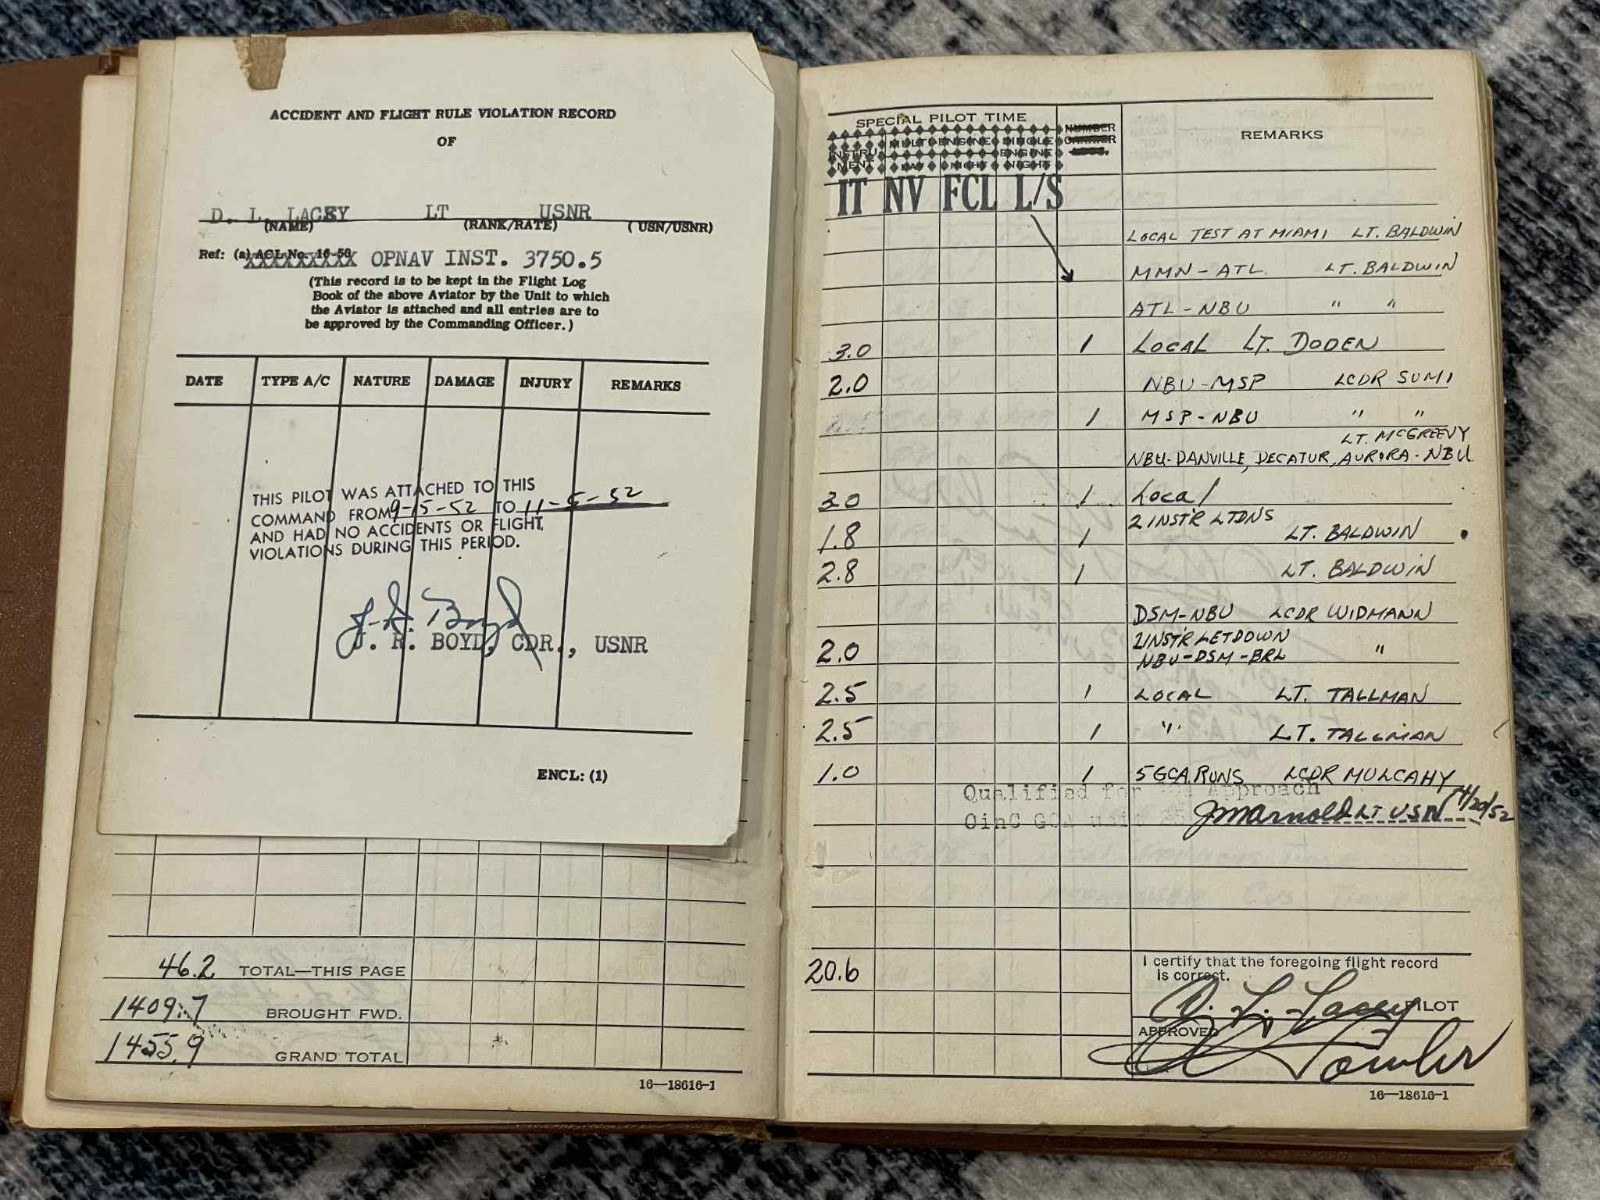 ACCIDENT AND FLIGHT RULE VIOLATION RECORD
OF
D. L. LACEY LT USNR
(NAME) (RANK/RATE) (USN/USNR)
Ref: (a) ACL No. 16-50 OPNAV INST. 3750.5
(This record is to be kept in the Flight Log
Book of the above Aviator by the Unit to which
the Aviator is attached and all entries are to
be approved by the Commanding Officer.)
DATE TYPE A/C NATURE DAMAGE INJURY REMARKS
THIS PILOT WAS ATTACHED TO THIS
COMMAND FROM 9-15-52 TO 11-5-52
AND HAD NO ACCIDENTS OR FLIGHT
VIOLATIONS DURING THIS PERIOD.
J. R. Boyd
J. R. BOYD, CDR., USNR
ENCL: (1)
46.2 TOTAL—THIS PAGE
1409.7 BROUGHT FWD.
1455.9 GRAND TOTAL
16—18616-1
SPECIAL PILOT TIME
INSTRU-MENT MULTI-ENGINE DAY NIGHT SINGLE ENGINE NIGHT NUMBER CARRIER REMARKS
IT NV FCL L/S
LOCAL TEST AT MIAMI LT. BALDWIN
MMN-ATL LT. BALDWIN
ATL-NBU " "
3.0 1 LOCAL LT. DODEN
2.0 NBU-MSP LCDR SUMI
1 MSP-NBU " "
LT. MCGREEVY
NBU-DANVILLE, DECATUR, AURORA-NBU
3.0 1 Local
2 INSTR LTDNS
1.8 1 LT. BALDWIN
2.8 1 LT. BALDWIN
DSM-NBU LCDR WIDMANN
2 INSTR LETDOWN
2.0 NBU-DSM-BRL "
2.5 1 LOCAL LT. TALLMAN
2.5 1 " LT. TALLMAN
1.0 1 5 GCA RUNS LCDR MULCAHY
Qualified for Approach
OinC GCA Unit JM Arnold LT USN 4/20/52
20.6
I certify that the foregoing flight record
is correct.
D. L. Lacey PILOT
APPROVED
Fowler
16—18616-1